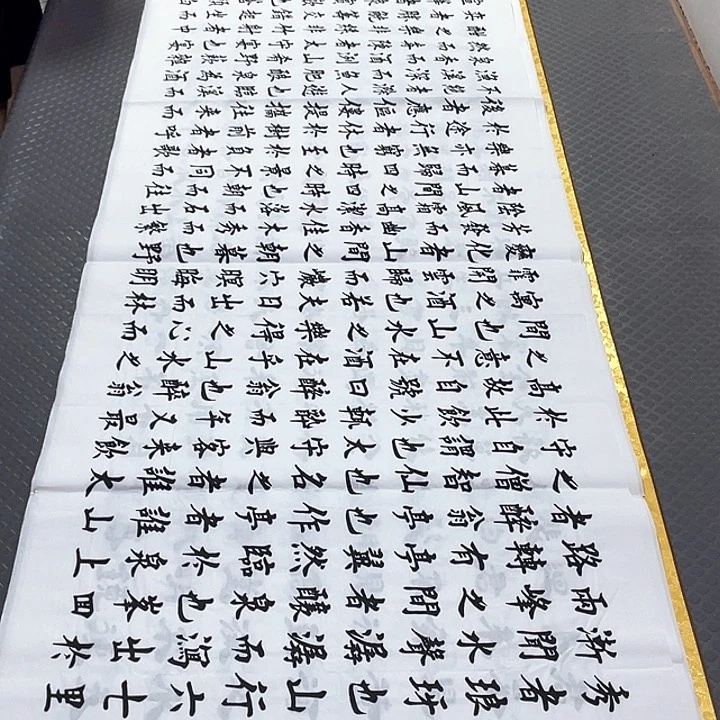 秀者琅玡也山行六七里
漸聞水聲潺潺而瀉出於
兩峰之間者釀泉也峯回
路轉有亭翼然臨於泉上
者醉翁亭也作亭者誰山
之僧智仙也名之者誰太
守自謂也太守與客來飲
於此飲少輒醉而年又最
高故自號曰醉翁也醉翁
之意不在酒在乎山水之
間也山水之樂得之心而
寓之酒也若夫日出而林
霏開雲歸而穴暝晦明
變化者山間之朝暮也野
芳發而幽香佳木秀而繁
陰風霜高潔水落而石出
者山間之四時也朝而往
暮而歸四時之景不同而
樂亦無窮也至於負者歌
於途行者休於樹前者呼
後者應傴僂提攜往來而
不絕者滁人遊也臨溪而
漁溪深而魚肥釀泉為酒
泉香而酒洌山肴野蔌雜
然而前陳者太守宴也宴